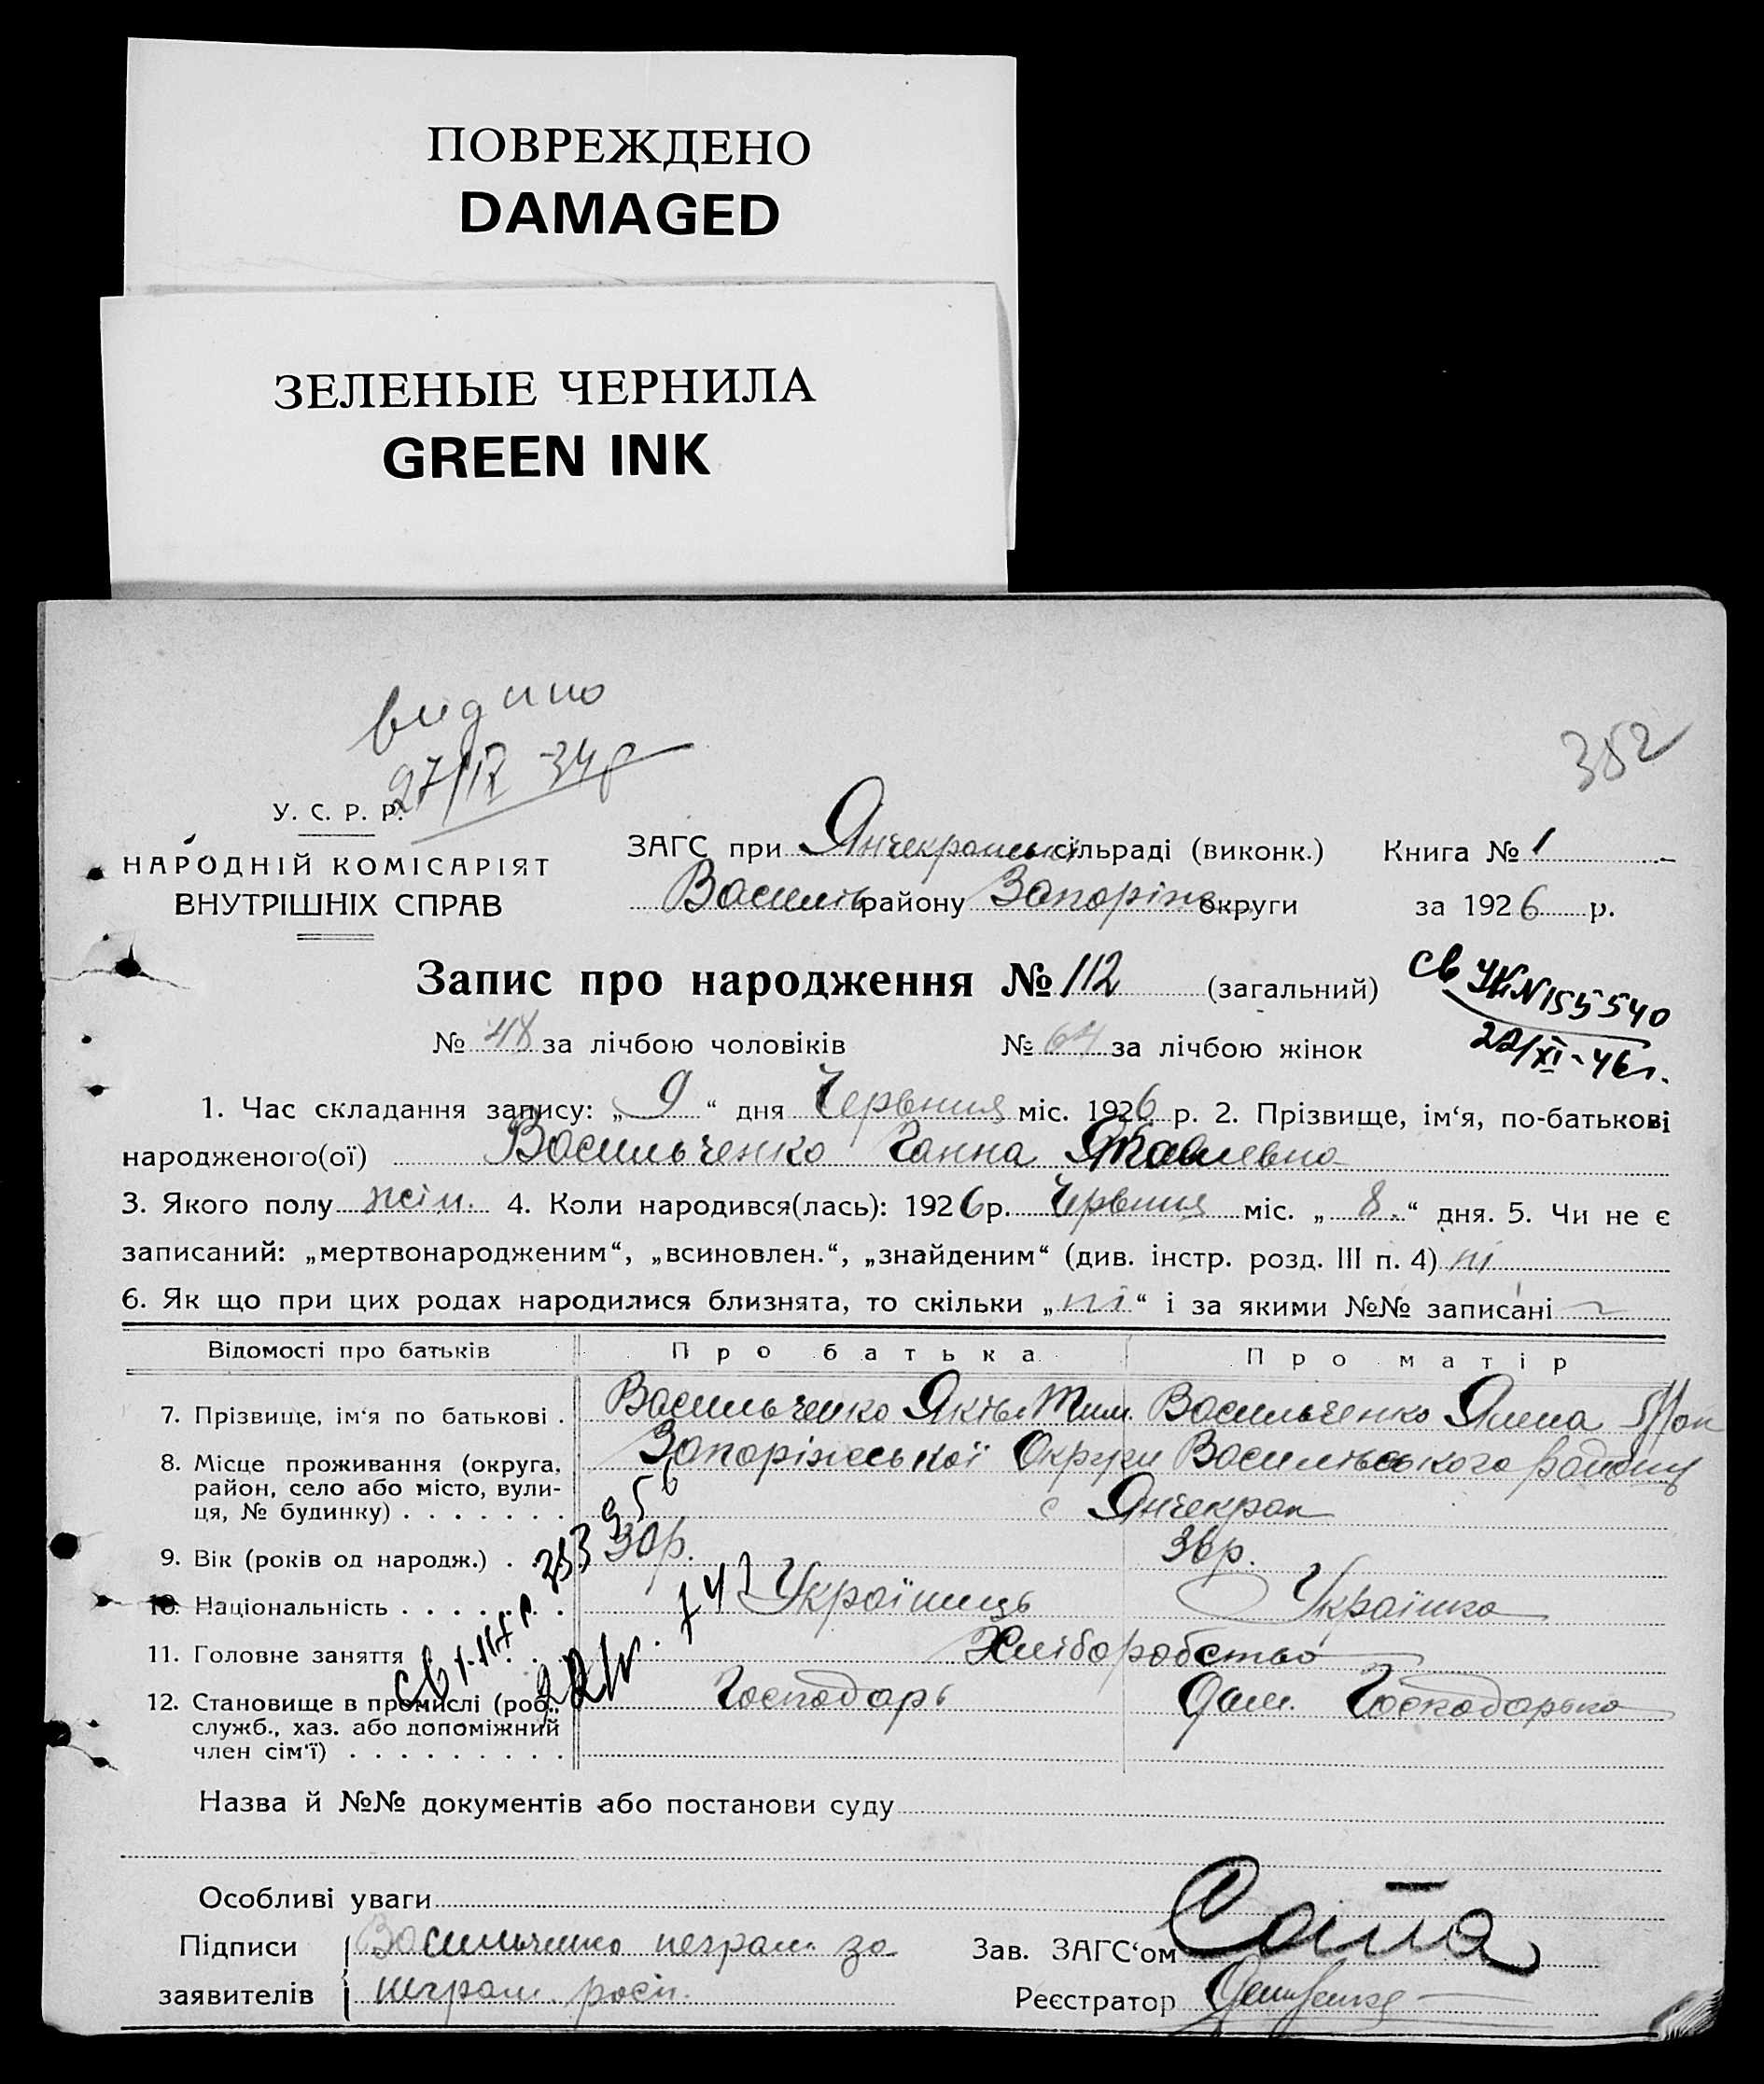 ПОВРЕЖДЕНО
DAMAGED
ЗЕЛЕНЫЕ ЧЕРНИЛА
GREEN INK
видано
352
У. С. Р. Р.
НАРОДНІЙ КОМІСАРІЯТ
ВНУТРІШНІХ СПРАВ
ЗАГС при Янчекрацькі сільраді (виконк.) Книга № 1
Василів району Запоріж округи за 1926 р.
Запис про народження № 112 (загальний)
св УК N 155540
22/XI-46г.
№ 48 за лічбою чоловіків № 64 за лічбою жінок
1. Час складання запису: „9“ дня Червния міс. 1926 р. 2. Прізвище, ім‘я, по-батькові
народженого(ої) Васильченко Ганна
3. Якого полу жін. 4. Коли народився(лась): 1926 р. Червния міс. „8.“ дня. 5. Чи не є
записаний: „мертвонародженим“, „всиновлен.“, „знайденим“ (див. інстр. розд. III п. 4) ні
6. Як що при цих родах народилися близнята, то скільки „ні“ і за якими №№ записані
Відомості про батьків Про батька Про матір
7. Прізвище, ім‘я по батькові . Васильченко Тим. Васильченко
8. Місце проживання (округа, Запоріжської Округи Василівського району
район, село або місто, вули-
ця, № будинку) . . . . . . . с Янчекрак
9. Вік (років од народж.) . . . 30р. 36р.
10. Національність . . . . . . . Українець Українка
11. Головне заняття . . . Хліборобство
12. Становище в промислі (роб., Господарь Дом. Господарька
служб., хаз. або допоміжний
член сім‘ї) . . . . . . . . .
Назва й №№ документів або постанови суду
Особливі уваги
Підписи Васильченко неграм. за
заявителів неграм. росп.
Зав. ЗАГС‘ом
Реєстратор